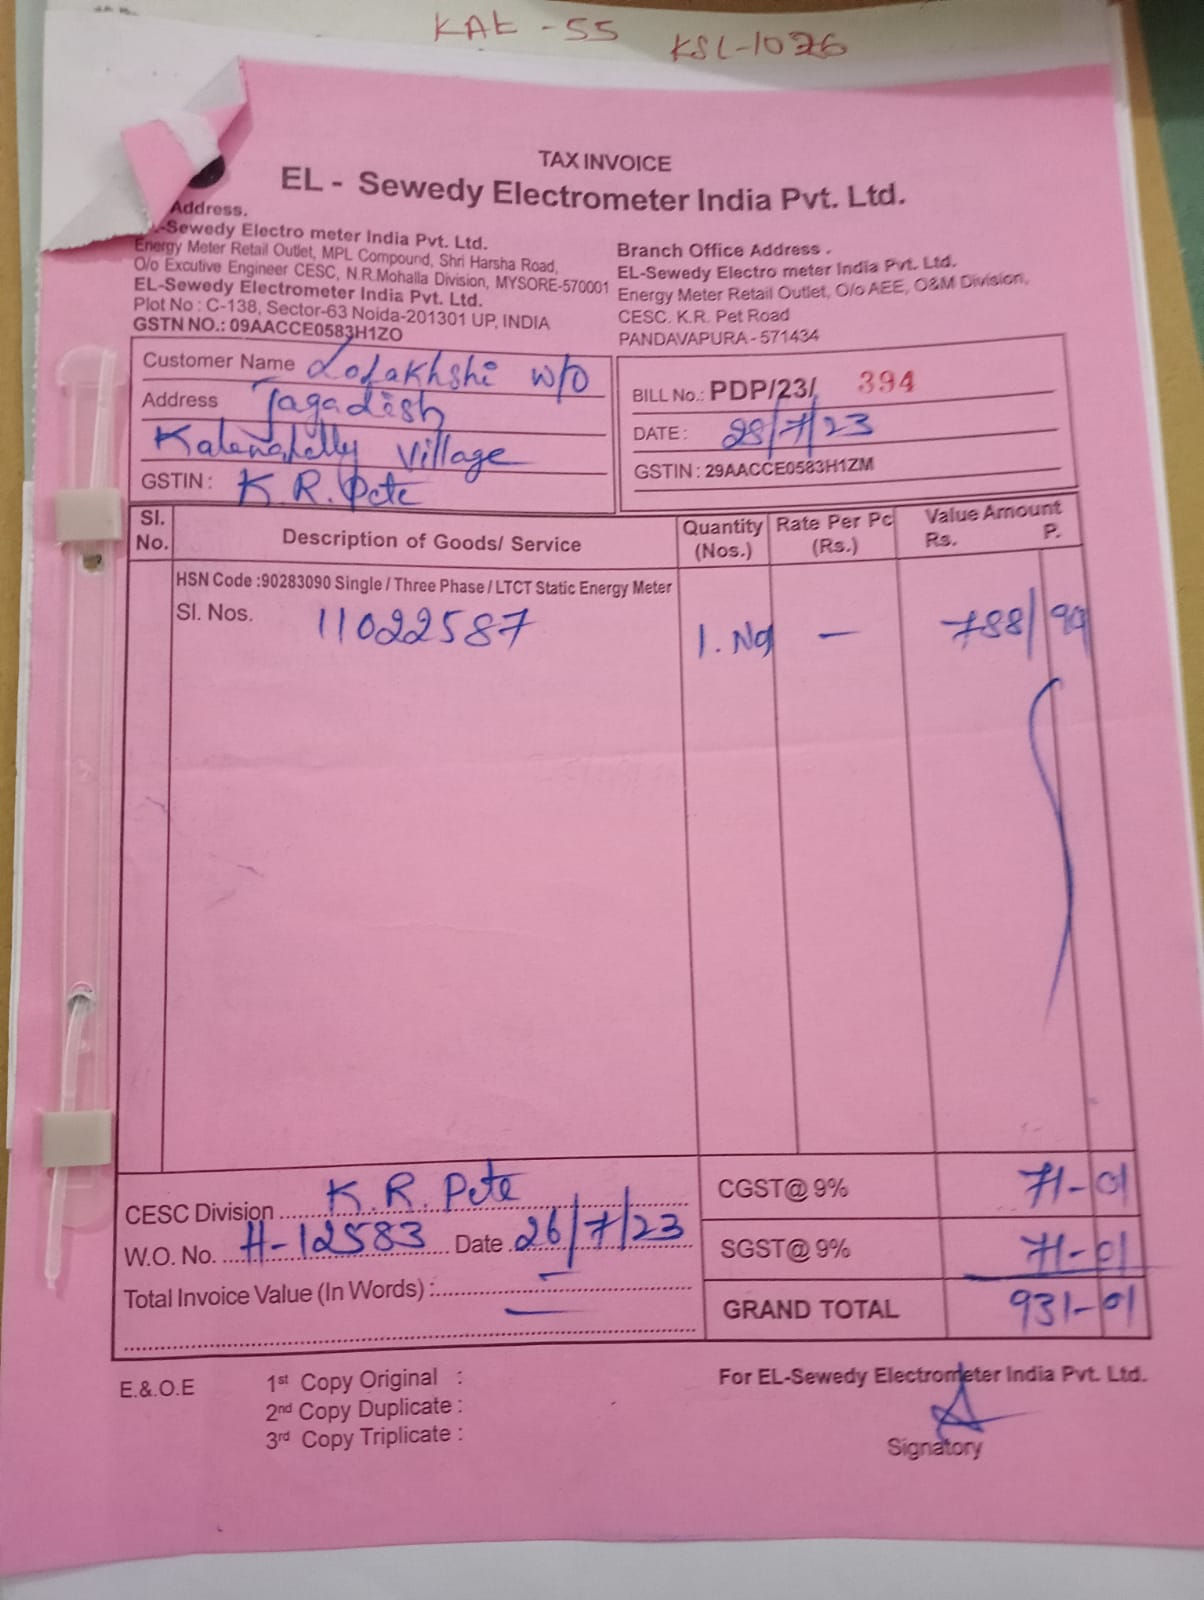 KAE - 55
KSL-1026
TAX INVOICE
EL - Sewedy Electrometer India Pvt. Ltd.
Address.
-Sewedy Electro meter India Pvt. Ltd.
Energy Meter Retail Outlet, MPL Compound, Shri Harsha Road,
O/o Excutive Engineer CESC, N.R.Mohalla Division, MYSORE-570001
EL-Sewedy Electrometer India Pvt. Ltd.
Plot No : C-138, Sector-63 Noida-201301 UP, INDIA
GSTN NO.: 09AACCE0583H1ZO
Branch Office Address .
EL-Sewedy Electro meter India Pvt. Ltd.
Energy Meter Retail Outlet, O/o AEE, O&M Division,
CESC. K.R. Pet Road
PANDAVAPURA - 571434
Customer Name Lolakhshi w/o
Address Jagadish
Village
GSTIN : K.R. Pete
BILL No.: PDP/23/ 394
DATE : 28/7/23
GSTIN : 29AACCE0583H1ZM
Sl. No. Description of Goods/ Service Quantity (Nos.) Rate Per Pc (Rs.) Value Amount Rs. P.
HSN Code :90283090 Single / Three Phase / LTCT Static Energy Meter
Sl. Nos. 11022587 1. No — 788/99
CESC Division K.R. Pete
W.O. No. H-12583 Date 26/7/23
Total Invoice Value (In Words) : —
—
CGST@ 9% 71-01
SGST@ 9% 71-01
GRAND TOTAL 931-01
E.&.O.E
1st Copy Original :
2nd Copy Duplicate :
3rd Copy Triplicate :
For EL-Sewedy Electrometer India Pvt. Ltd.
Signatory